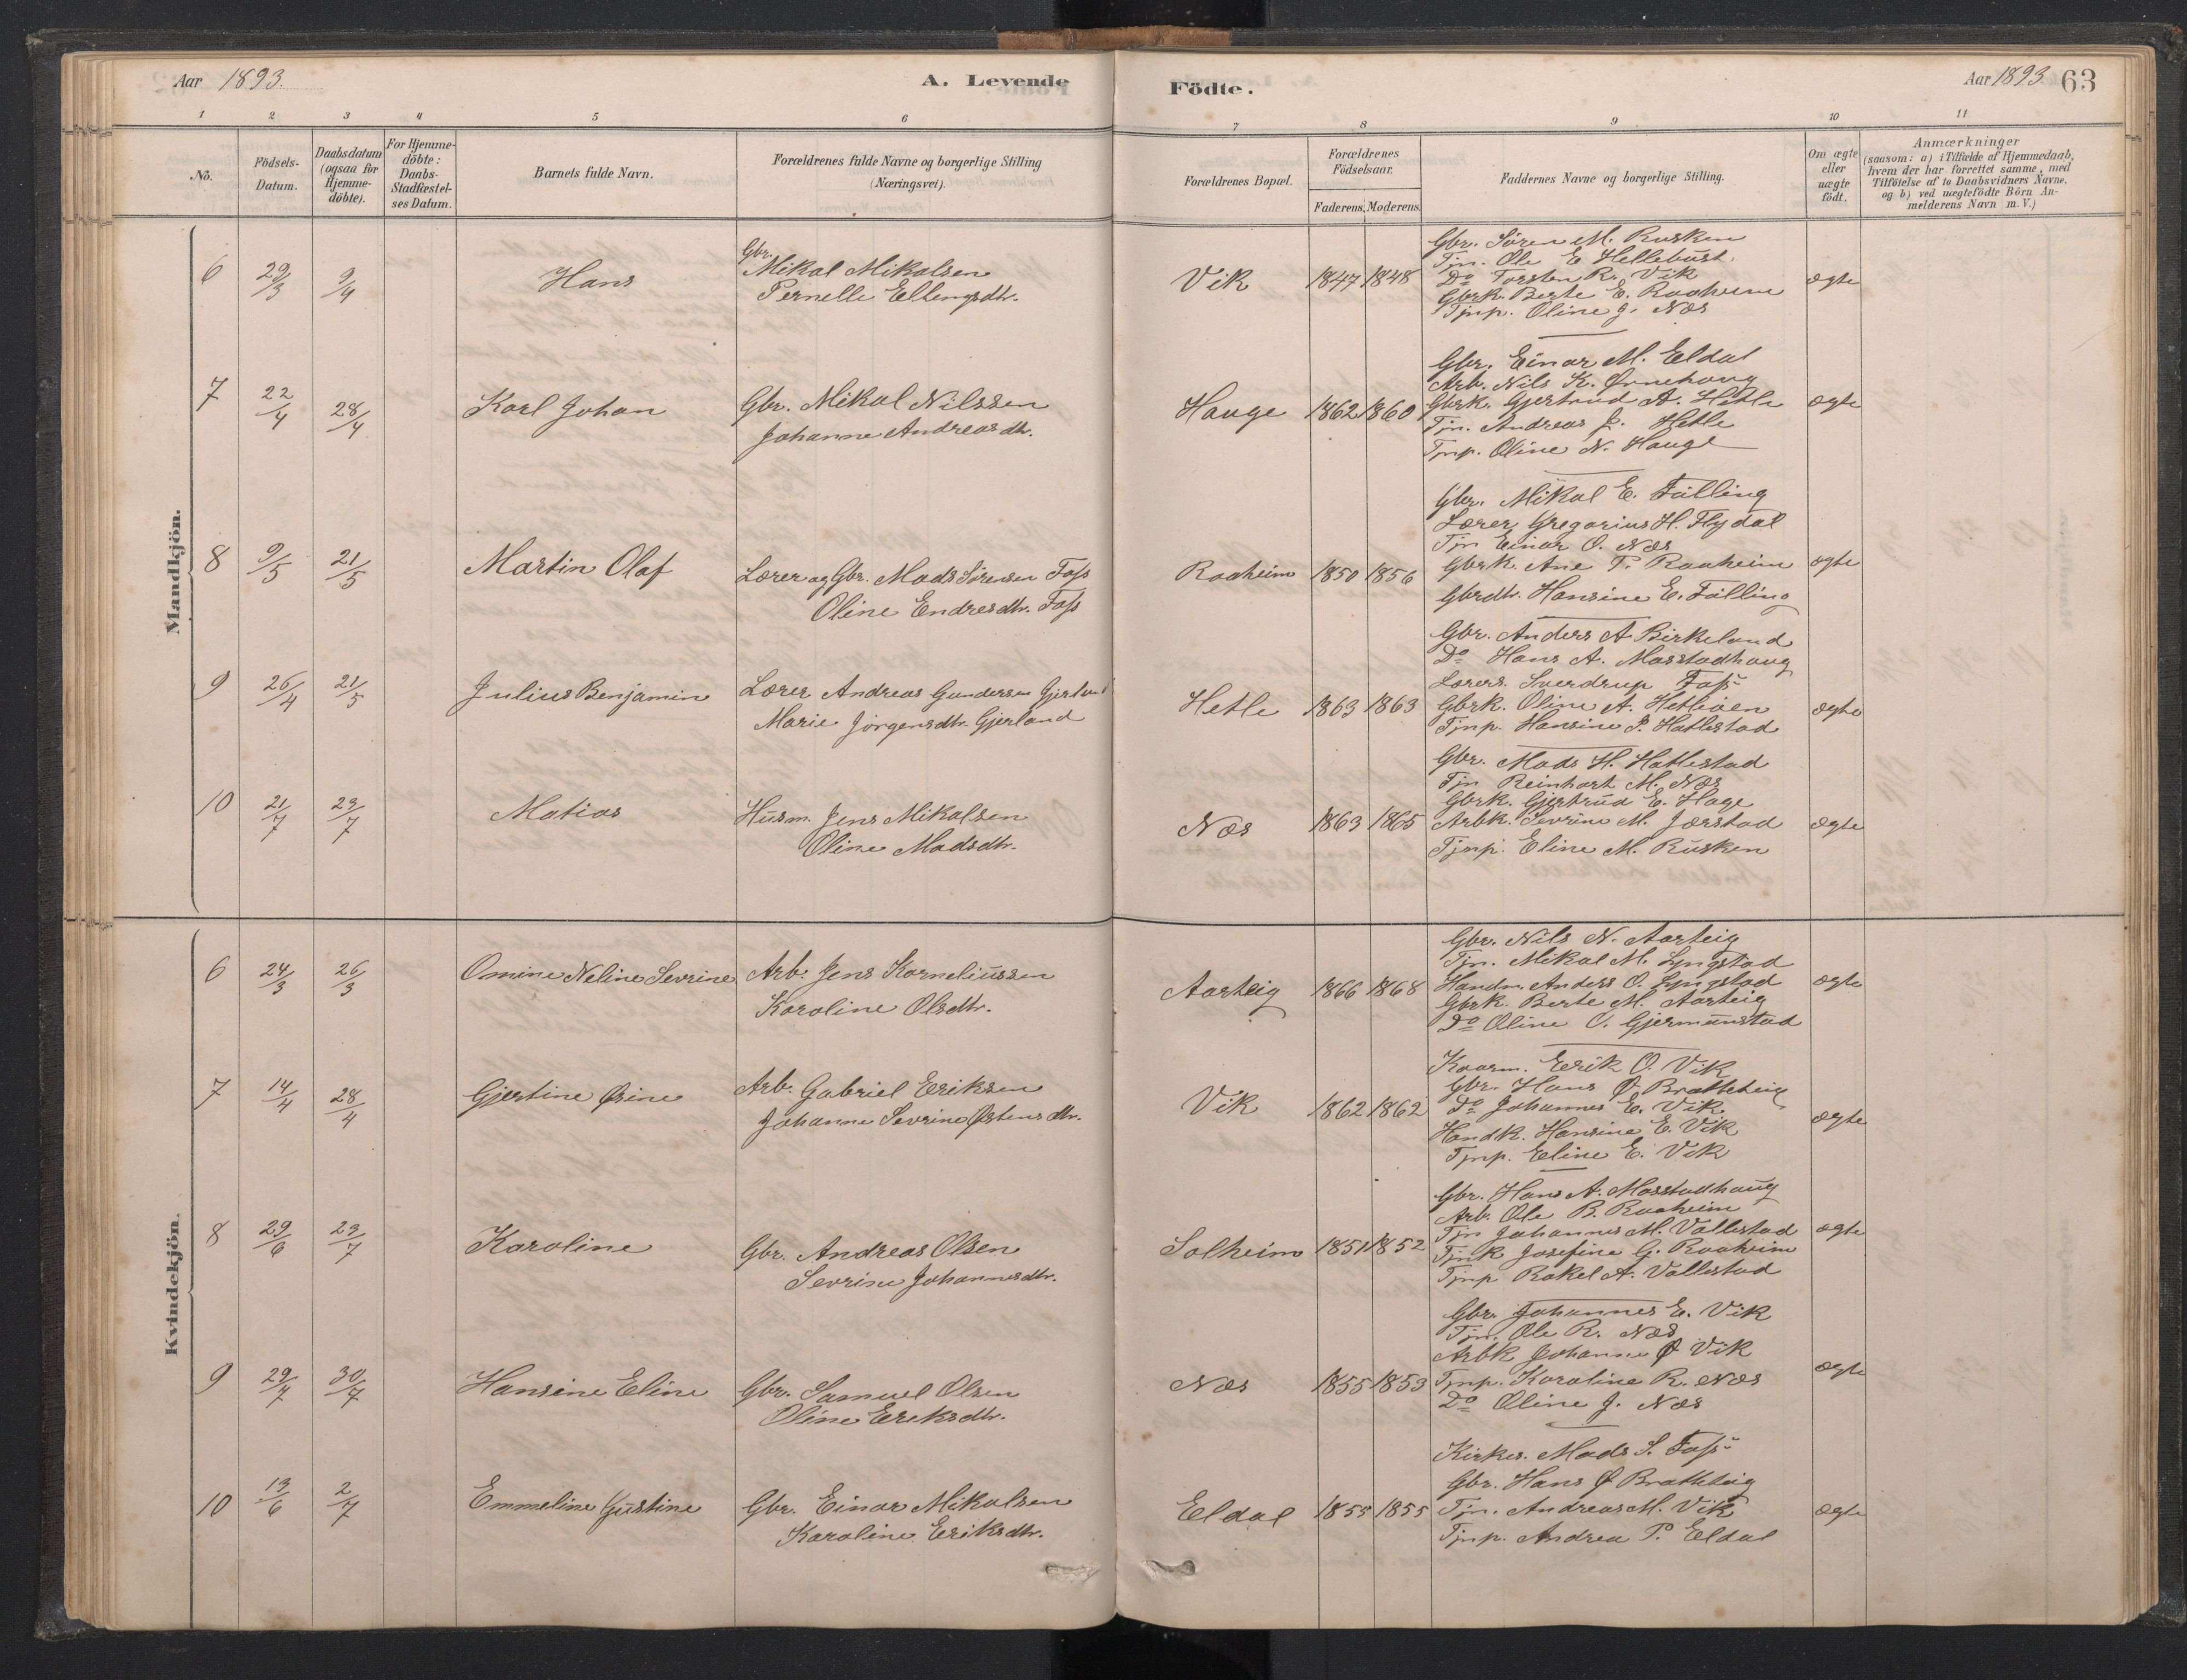 Aar 1893.
A. Levende
Födte.
Aar 1893. 63
1 2 3 4 5 6 7 8 9 10 11
No.
Födsels-Datum.
Daabsdatum (ogsaa for Hjemme-döbte).
For Hjemme-döbte: Daabs-Stadfæstel-ses Datum.
Barnets fulde Navn.
Forældrenes fulde Navne og borgerlige Stilling (Næringsvei).
Forældrenes Bopæl.
Forældrenes Födselsaar.
Faderens. Moderens.
Faddernes Navne og borgerlige Stilling.
Om ægte eller uægte födt.
Anmærkninger
(saasom: a) i Tilfælde af Hjemmedaab, hvem der har forrettet samme, med Tilföielse af to Daabsvidners Navne, og b) ved uægtefödte Börn An-melderens Navn m. V.)
Mandkjön.
6 29/3 9/4 Hans
Gbr. Mikal Mikalsen
Pernelle Ellengsdtr.
Vik 1847 1848
Gbr. Sören M. Rusken
Tjn. Ole E Hellebust.
Do Torsten R. Vik
Gbrk. Berte E. Raaheim
Tjnp. Oline J. Næs
ægte
7 22/4 28/4 Karl Johan
Gbr. Mikal Nilssen
Johanne Andreasdtr.
Hauge 1862 1860
Gbr. Einar M. Eldal
Arb. Nils K. Ørnehaug
Gbrk. Gjertrud A. Hetle
Tjn. Andreas J. Hetle
Tjnp. Oline N. Hauge
ægte
8 9/5 21/5 Martin Olaf
Lærer og Gbr. Mads Sørensen Foss
Oline Endresdtr. Foss
Raaheim 1850 1856
Gbr. Mikal E. Fälling
Lærer Gregorius H. Flydal
Tjn Einar O. Næs
Gbrk. Ane T. Raaheim
Gbrdtr. Hansine E. Fälling
ægte
9 26/4 21/5 Julius Benjamin
Lærer Andreas Gundersen Gjerland
Marie Jörgensdtr. Gjerland
Hetle 1863 1863
Gbr. Anders A Birkeland
Do Hans A. Masstadhaug
Lærers. Sverdrup Foss
Gbrk. Oline A. Hetleven
Tjnp. Hansine P. Hatlestad
ægte
10 21/7 23/7 Matias
Husm. Jens Mikalsen
Oline Madsdtr.
Næs 1863 1865
Gbr. Mads H. Hatlestad
Tjn Reinhart M. Næs
Gbrk. Gjertrud E. Hage
Arbk. Sevrine M. Jærstad
Tjnp. Eline M. Rusken
ægte
Kvindekjön.
6 24/3 26/3 Omine Neline Sevrine
Arb. Jens Korneliussen
Karoline Olsdtr.
Aarteig 1866 1868
Gbr. Nils N. Aarteig
Tjn. Mikal M. Lyngstad
Handm. Anders O. Lyngstad
Gbrk. Berte M. Aarteig
Do Oline O. Gjermunstad
ægte
7 14/4 28/4 Gjertine Øsine
Arb. Gabriel Eriksen
Johanne Sevrine Østensdtr.
Vik 1862 1862
Kaarm. Erik O. Vik
Gbr. Hans Ø. Bratteteig
Do Johannes E. Vik
Handk. Hansine E. Vik
Tjnp. Eline E. Vik
ægte
8 29/6 23/7 Karoline
Gbr. Andreas Olsen
Sevrine Johannesdtr.
Solheim 1851 1852
Gbr. Hans A. Masstadhaug
Arb. Ole B. Raaheim
Tjn Johannes M. Vallestad
Tjnk Josefine G. Raaheim
Tjnp Rakel A. Vallestad
ægte
9 29/7 30/7 Hansine Eline
Gbr. Samuel Olsen
Oline Eriksdtr.
Næs 1855 1853
Gbr. Johannes E. Vik
Tjn. Ole R. Næs
Arbk Johanne Ø Vik
Tjnp. Karoline R. Næs
Do Oline J. Næs
ægte
10 13/6 2/7 Emmeline Gustine
Gbr. Einar Mikalsen
Karoline Eriksdtr.
Eldal 1855 1855
Kirkes. Mads S. Foss
Gbr. Hans Ø Bratteteig
Tjn. Andreas M. Vik
Tjnp. Andrea P. Eldal
ægte